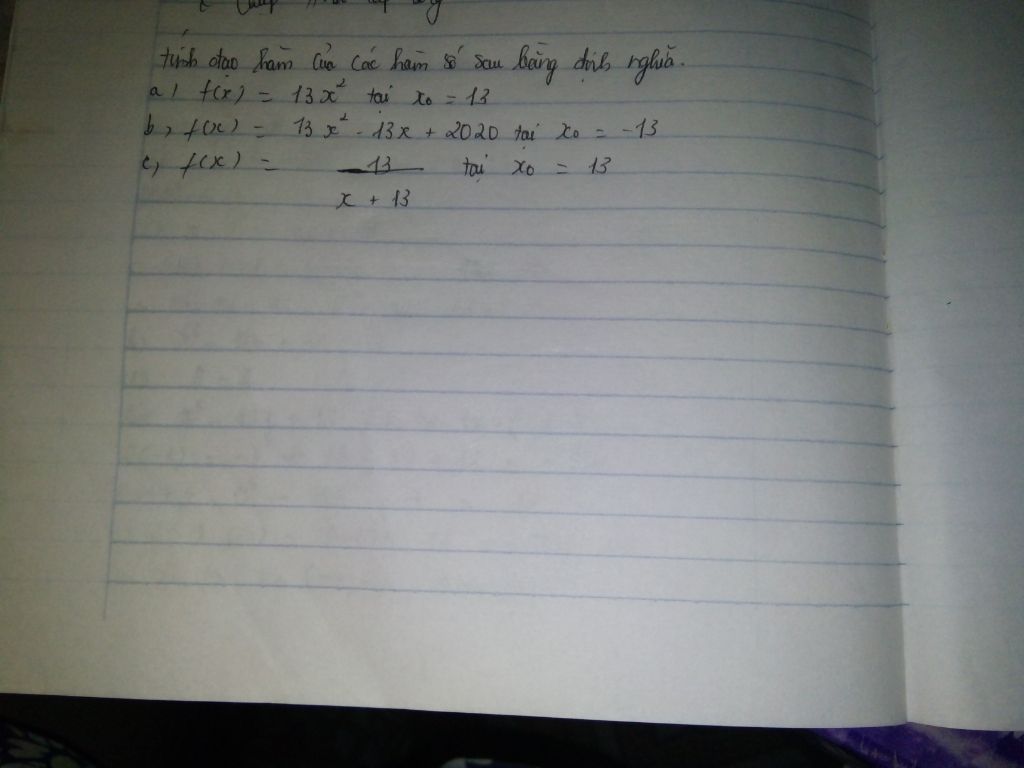 tính đạo hàm của các hàm số sau bằng định nghĩa.
a, f(x) = 13x² tại x₀ = 13
b, f(x) = 13x² - 13x + 2020 tại x₀ = -13
c, f(x) = 13 / x + 13 tại x₀ = 13